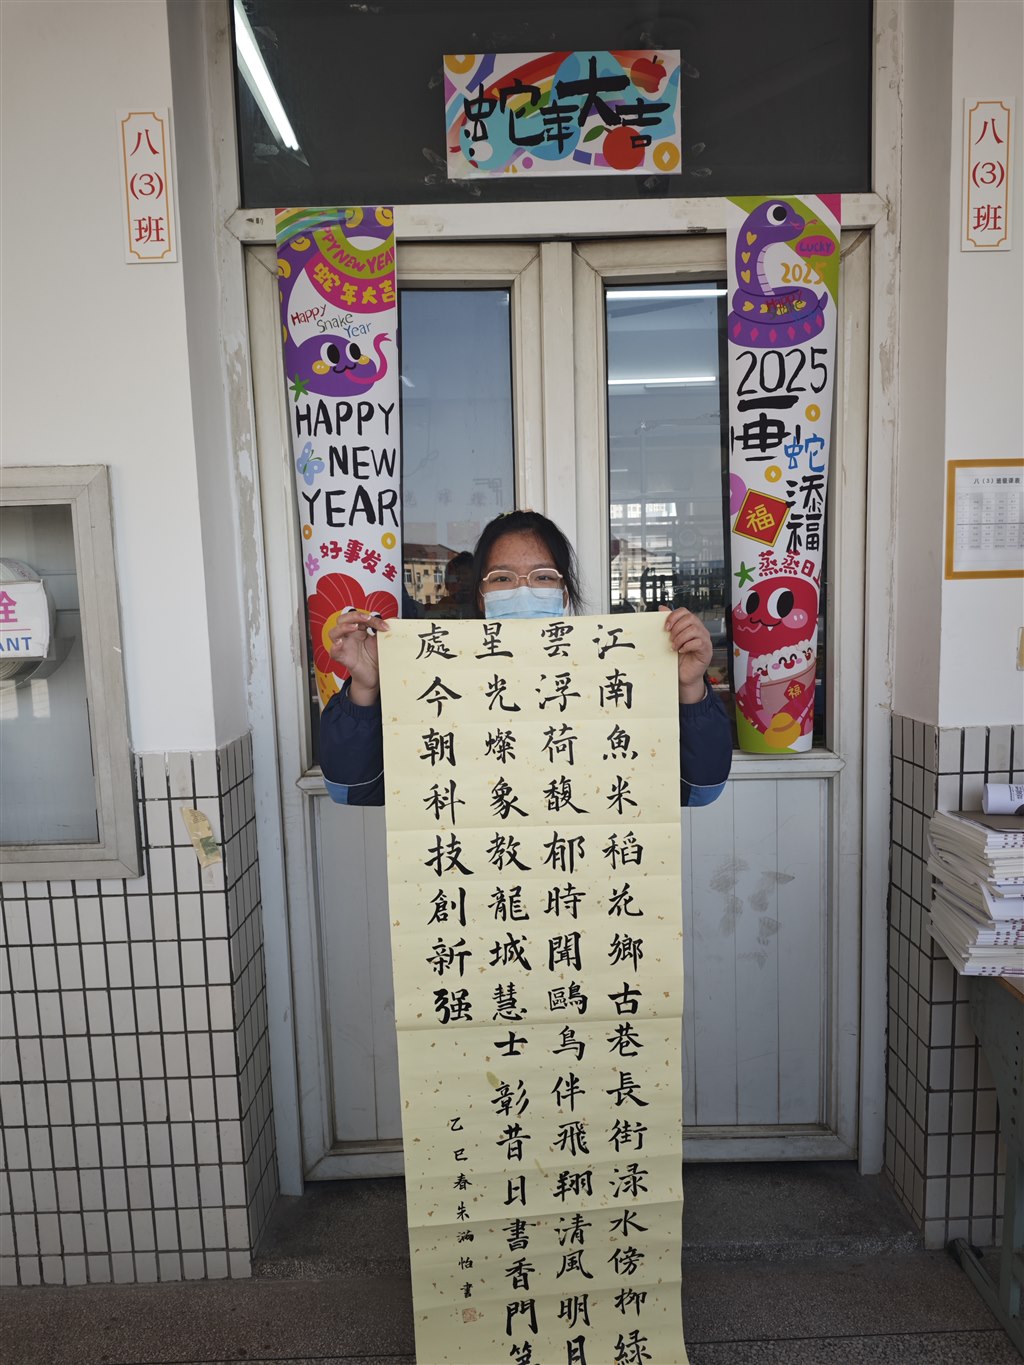 蛇年大吉
八(3)班
八(3)班
HAPPY NEW YEAR
蛇年大吉
Happy
Snake
Year
HAPPY
NEW
YEAR
好事发生
LUCKY
2025
2025
一
蛇
添
福
福
蒸蒸日上
福
八（3）班级课表
江南魚米稻花鄉古巷長街渌水傍柳緑
雲浮荷馥郁時聞鷗鳥伴飛翔清風明月
星光燦象教龍城慧士彰昔日書香門第
處今朝科技創新强
乙巳春朱滿怡書
全
ANT